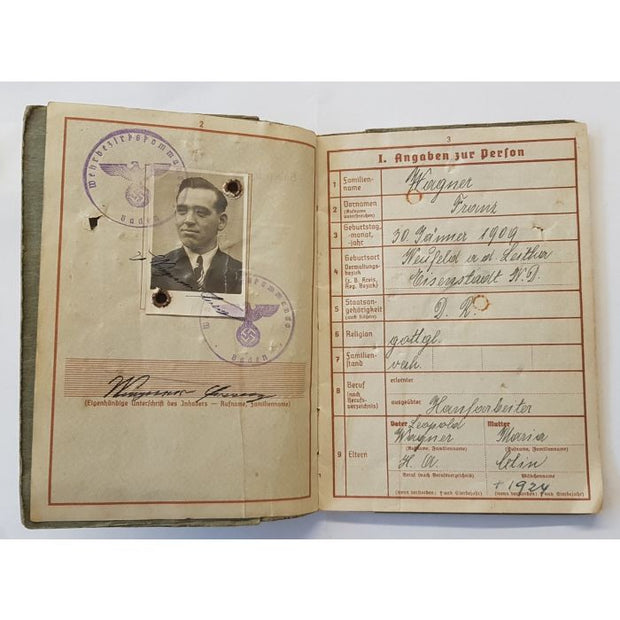 2
Wehrbezirkskommando
Baden
Baden
(Eigenhändige Unterschrift des Inhabers — Rufname, Familienname)
3
I. Angaben zur Person
1 Familien-name Wagner
2 Vornamen (Rufname unterstreichen) Franz
3 Geburtstag, -monat, -jahr 30. Jänner 1909
4 Geburtsort Neufeld a d Leitha
Verwaltungsbezirk (z. B. Kreis, Reg. Bezirk) Eisenstadt N.D.
5 Staatsan-gehörigkeit (auch frühere) D. R.
6 Religion gottgl.
7 Familien-stand verh.
8 Beruf (nach Berufs-verzeichnis) erlernter
ausgeübter Hanfarbeiter
9 Eltern
Vater Leopold Mutter
Wagner Maria
(Rufname, Familienname) (Rufname, Familienname)
H. A.
Beruf (nach Berufsverzeichnis) Mädchenname
† 1924
(wenn verstorben: † und Sterbejahr) (wenn verstorben: † und Sterbejahr)